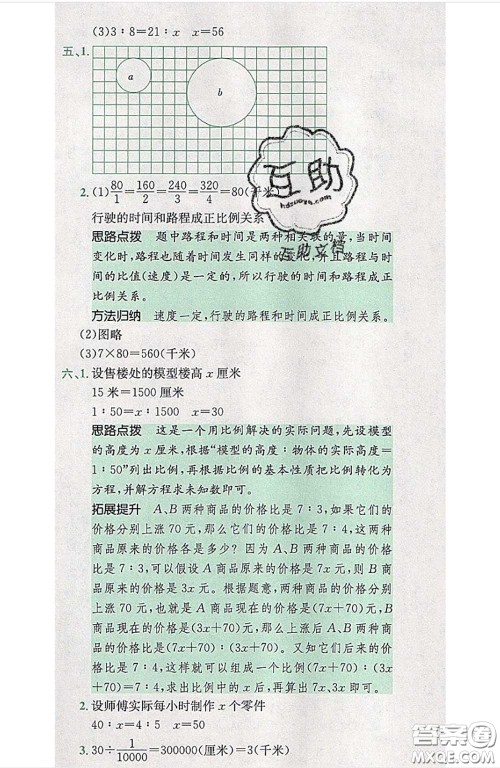 (3)3∶8=21∶x　x=56
五、1.
a
b
2. (1)80/1=160/2=240/3=320/4=80(千米
行驶的时间和路程成正比例关系
思路点拨　题中路程和时间是两种相关联的量,当时间
变化时,路程也随着时间发生同样的变化,并且路程与时
间的比值(速度)是一定的,所以行驶的时间和路程成正
比例关系。
方法归纳　速度一定,行驶的路程和时间成正比例关系。
(2)图略
(3)7×80=560(千米)
六、1. 设售楼处的模型楼高 x 厘米
15 米=1500 厘米
1∶50=x∶1500　x=30
思路点拨　这是一个用比例解决的实际问题,先设模型
的高度为 x 厘米,根据“模型的高度∶物体的实际高度=
1∶50”列出比例,再根据比例的基本性质把比例转化为
方程,并解方程求未知数即可。
拓展提升　A、B 两种商品的价格比是 7∶3,如果它们的
价格分别上涨 70 元,那么它们的价格比是 7∶4,这两种
商品原来的价格各是多少? 因为 A、B 两种商品的价格
比是 7∶3,可以假设 A 商品原来的价格是 7x 元,则 B 商
品原来的价格是 3x 元。根据题意,两种商品的价格分别
上涨 70 元,也就是 A 商品现在的价格是(7x+70)元,B
商品现在的价格是(3x+70)元,那么 A 商品与 B 商品现
在的价格比是(7x+70)∶(3x+70)。又知它们后来的价
格比是 7∶4,这样就可以组成一个比例(7x+70)∶(3x
+70)=7∶4,求出比例中的 x 后,再算出 7x、3x 即可。
2. 设师傅实际每小时制作 x 个零件
40∶x=4∶5　x=50
3. 30÷1/10000=300000(厘米)=3(千米)
互助
hdzuoye.com
互助文档
答案圈
MXQE.COM